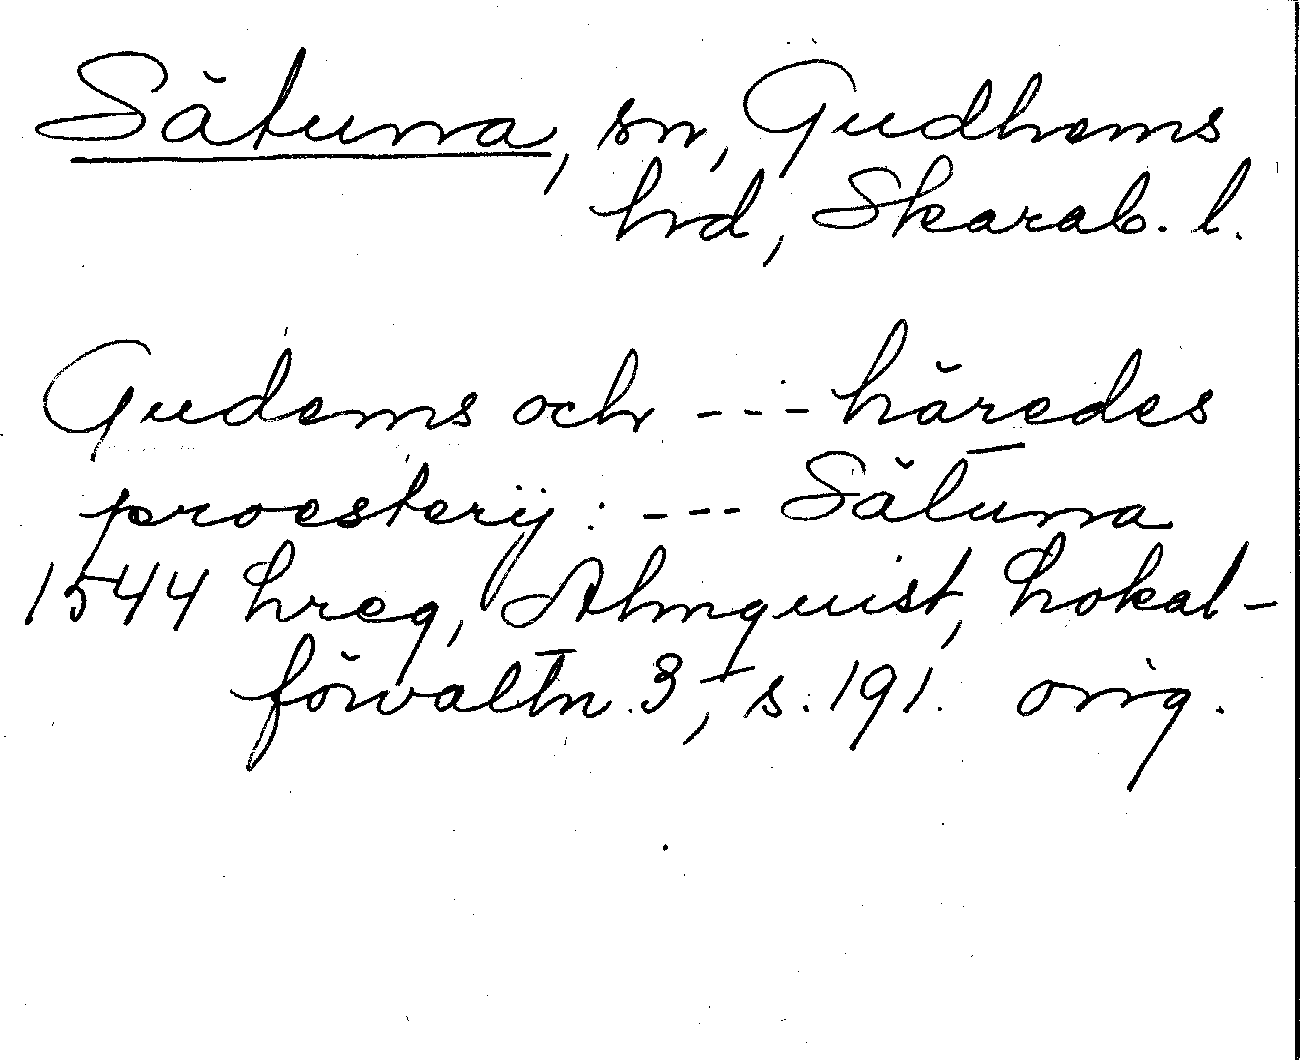 Sätuna, sn, Gudhems
hd, Skarab. l.
Gudems och --- häredes
proesterij: --- Sätuna
1544 hreg, Almquist, Lokal-
förvaltn. 3, s. 191. orig.